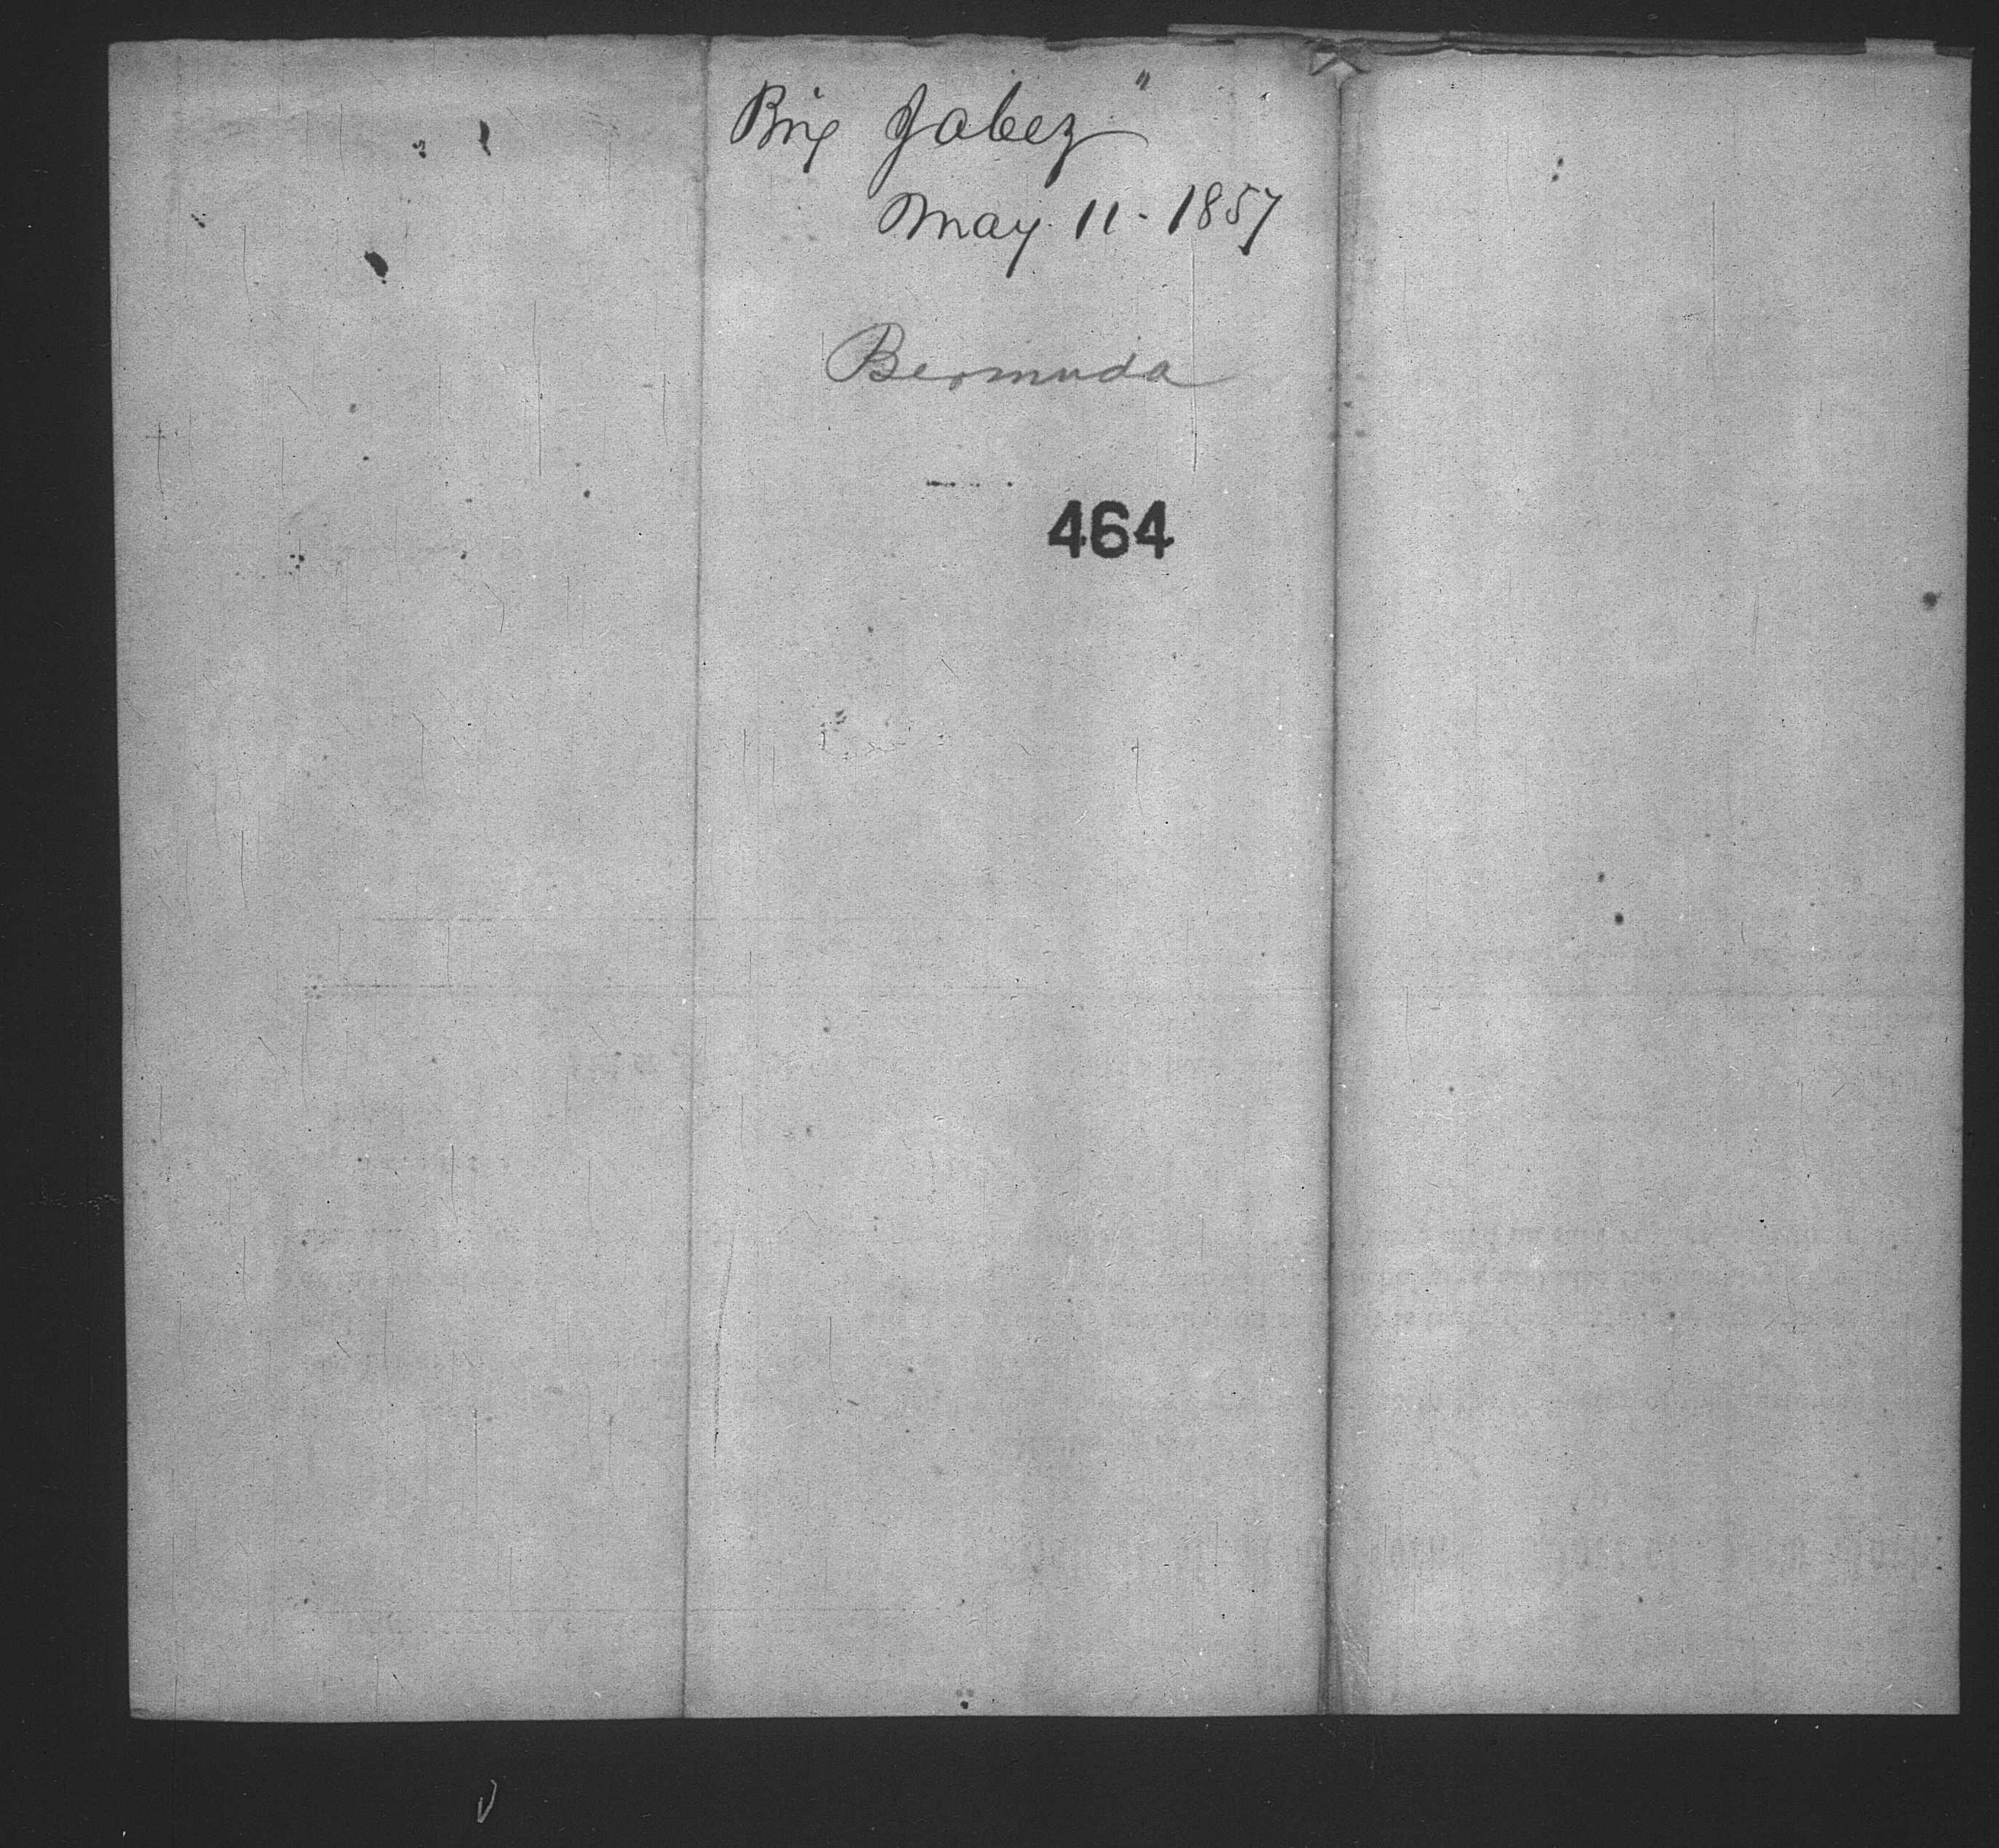 Brig Jabez"
May 11 - 1857
Bermuda
464